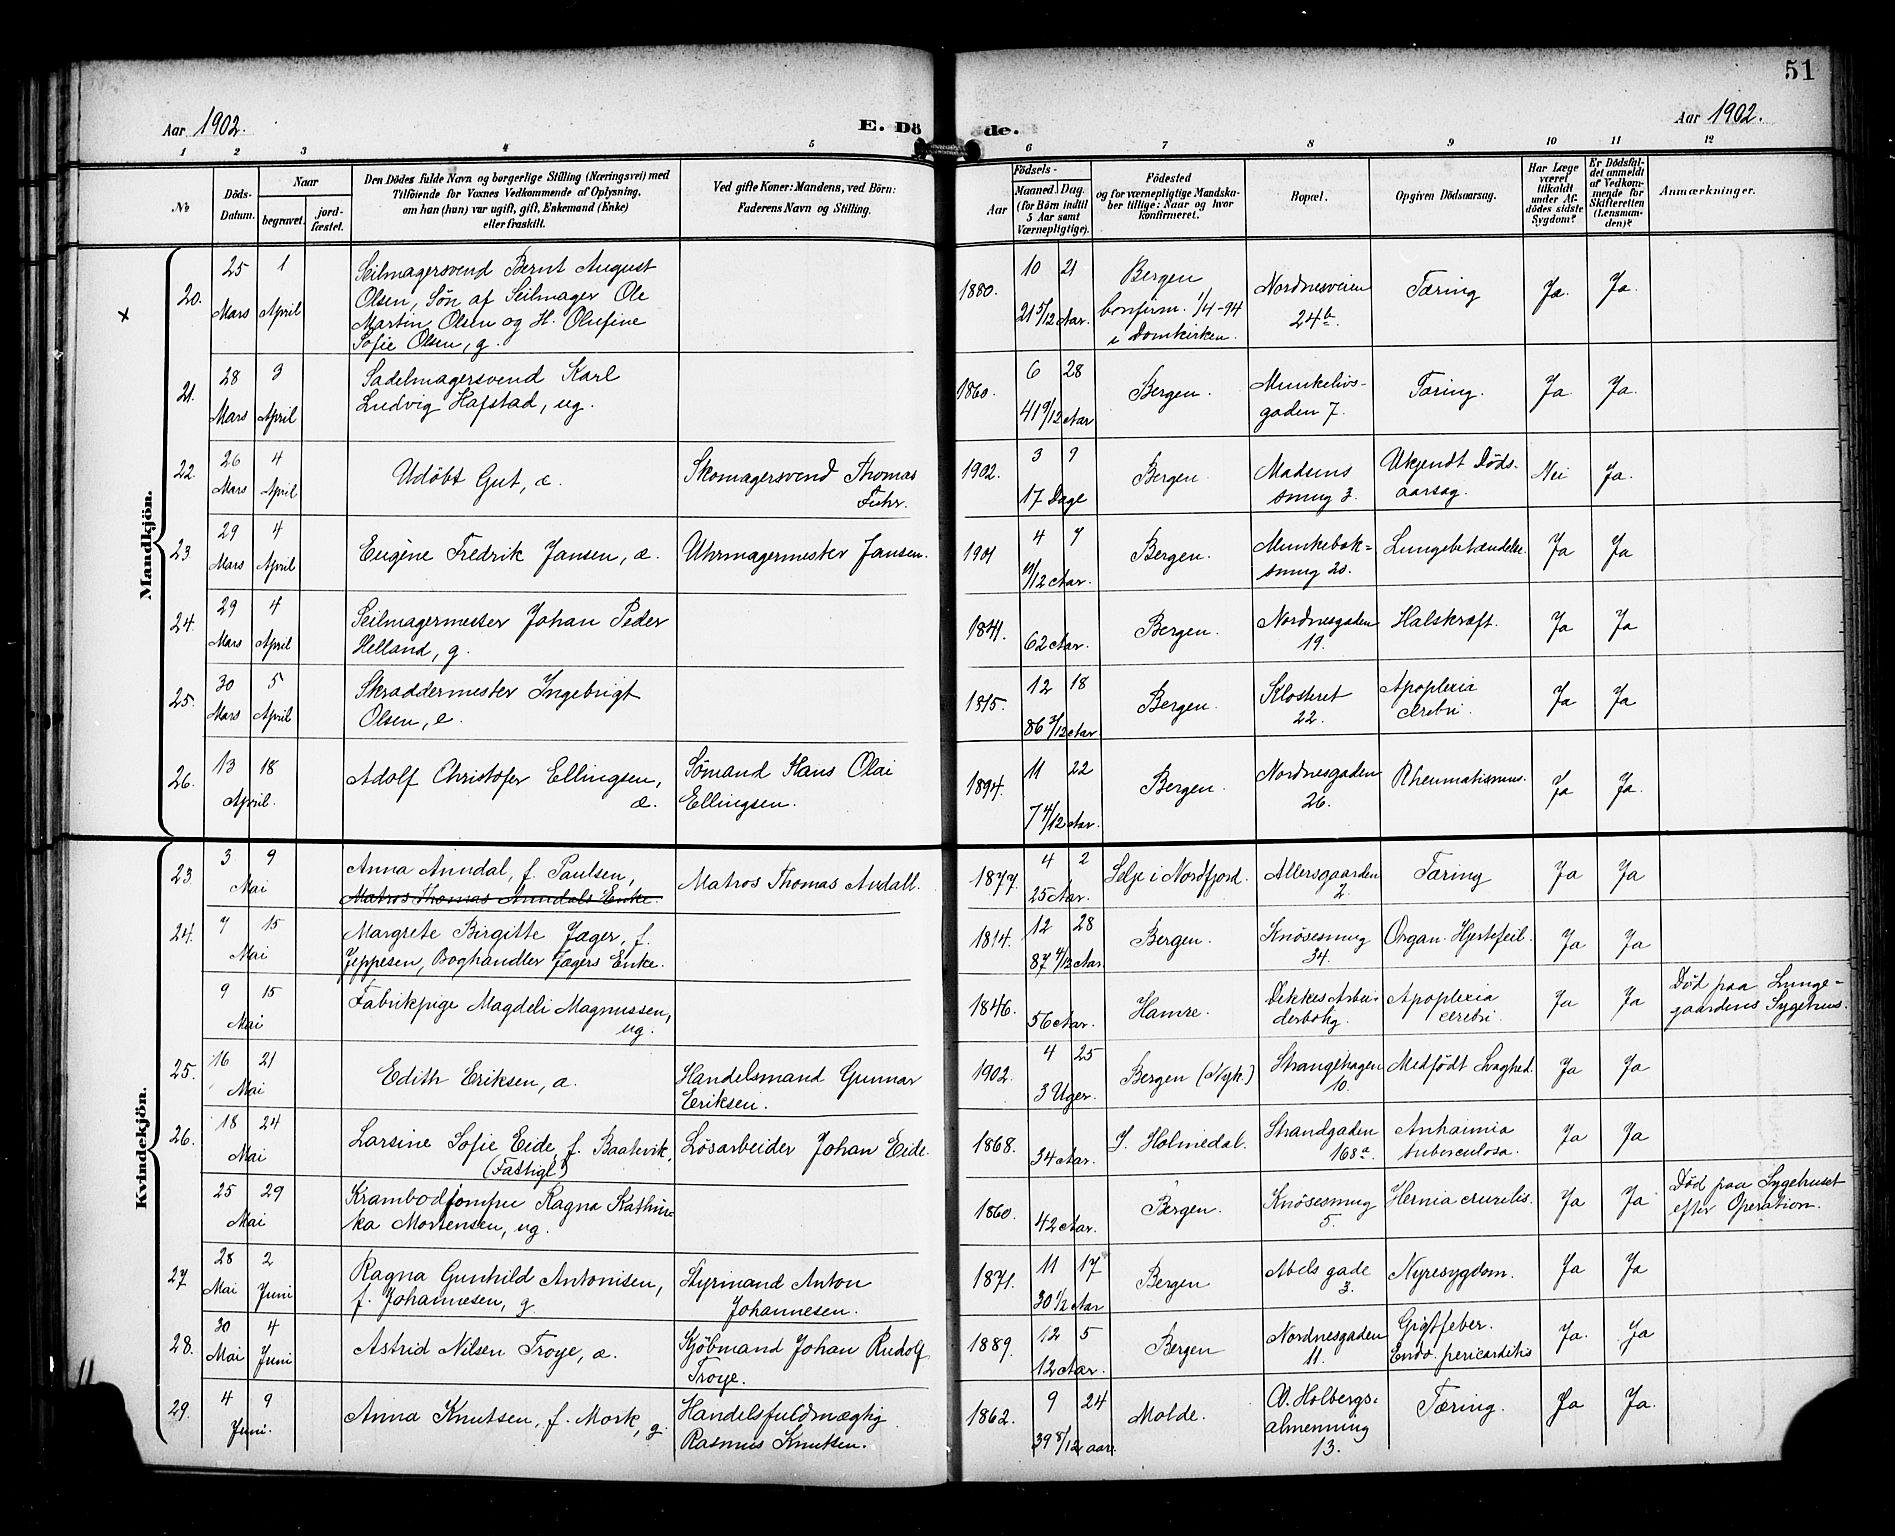 51
Aar 1902.
E. Döde.
Aar 1902.
1 2 3 4 5 6 7 8 9 10 11 12
No
Döds-Datum.
Naar
begravet.
jord-fæstet.
Den Dödes fulde Navn og borgerlige Stilling (Næringsvei) med
Tilföiende for Voxnes Vedkommende af Oplysning.
om han (hun) var ugift, gift, Enkemand (Enke)
eller fraskilt.
Ved gifte Koner: Mandens, ved Börn:
Faderens Navn og Stilling.
Födsels-
Aar
Maaned. Dag.
(for Börn indtil
5 Aar samt
Værnepligtige).
Födested
og for værnepligtige Mandska-
ber tillige: Naar og hvor
konfirmeret.
Bopæl.
Opgiven Dödsaarsag.
Har Læge
været
tilkaldt
under Af-
dödes sidste
Sygdom?
Er Dödsfal-
det anmeldt
af Vedkom-
mende for
Skifteretten
(Lensman-
den)?
Anmærkninger.
Mandkjön.
x
20. 25 Mars 1 April
Seilmagersvend Bernt August
Olsen, Søn af Seilmager Ole
Martin Olsen og H. Olufine
Sofie Olsen, g.
1880. 10 21
21 5/12 Aar.
Bergen
Confirm. 1/4-94
i Domkirken.
Nordnesveien
24b.
Tæring Ja. Ja.
21. 28 Mars 3 April
Sadelmagersvend Karl
Ludvig Hafstad, ug.
1860. 6 28
41 9/12 Aar
Bergen.
Munkelivs-
gaden 7.
Tæring. Ja Ja.
22. 26 Mars 4 April
Udöbt Gut, æ.
Skomagersvend Thomas
Fuhr.
1902. 3 9
17 Dage
Bergen.
Madsens
smug 3.
Ukjendt Døds-
aarsag.
Nei Ja.
23 29 Mars 4 April
Eugène Fredrik Jansen, æ.
Uhrmagermester Jansen.
1901 4 7
11/12 Aar.
Bergen.
Munkebæk-
smug 20.
Lungebetændelse. Ja Ja
24. 29 Mars 4 April
Seilmagermester Johan Peder
Helland, g.
62 Aar.
Bergen.
Nordnesgaden
19.
Halskræft. Ja Ja
25. 30 Mars 5 April
Skræddermester Ingebrigt
Olsen, e.
1815. 12 18
86 3/12 Aar
Bergen.
Klosteret
22.
Apoplexia
cerebri.
Ja Ja
26. 13 18 April.
Adolf Christofer Ellingsen,
æ.
Sømand Hans Olai
Ellingsen.
1894. 11 22
7 4/12 Aar.
Bergen.
Nordnesgaden
26.
Rheumatismus. Ja Ja.
Kvindekjön.
23. 3 9 Mai
Anna Anndal, f. Paulsen,
Matros Thomas Anndals Enke.
Matros Thomas Andall.
1877. 4 2
25 Aar.
Selje i Nordfjord.
Allersgaarden
2.
Tæring Ja Ja
24. 7 15 Mai
Margrete Birgitte Jæger, f.
Jeppesen, Boghandler Jægers Enke.
1814. 12 28
87 4/12 Aar
Bergen.
Knøsesmug
34.
Organ. Hjertefeil. Ja Ja
9 15 Mai
Fabrikpige Magdeli Magnussen,
ug.
1846.
56 Aar.
Hamre.
Dekkes Arbei-
derbolig.
Apoplexia
cerebri.
Ja Ja
Død paa Lunge-
gaardens Sygehus.
25. 16 21 Mai
Edith Eriksen, æ.
Handelsmand Gunnar
Eriksen.
1902. 4 25
3 Uger.
Bergen (Nyk.)
Strangehagen
10.
Medfødt Svaghed. Ja Ja
26. 18 24 Mai
Larsine Sofie Eide, f. Baatevik,
(Fattigl.)
Løsarbeider Johan Eide.
1868.
34 Aar.
Y. Holmedal.
Strandgaden
168a.
Anhaimia
tuberculosa.
Ja Ja
25 29 Mai
Krambodjomfru Ragna Kathin-
ka Mortensen, ug.
1860.
42 Aar.
Bergen.
Knøsesmug
5.
Hernia cruralis. Ja Ja
Død paa Sygehuset
efter Operation.
27 28 Mai 2 Juni
Ragna Gunhild Antonisen,
f. Johannesen, g.
Styrmand Anton
Johannesen.
1871. 11 17
30 1/2 Aar
Bergen
Abels gade
3.
Nyresygdom. Ja Ja
28. 30 Mai 4 Juni
Astrid Nilsen Troye, æ.
Kjøbmand Johan Rudolf
Troye.
1889. 12 5
12 Aar.
Bergen
Nordnesgaden
11.
Gigtfeber.
Endo. pericarditis
Ja. Ja
29. 4 9 Juni.
Anna Knutsen, f. Mork, g.
Handelsfuldmægtig
Rasmus Knutsen.
1862. 9 24
39 8/12 aar.
Molde.
Holbergs-
almenning
13.
Tæring. Ja Ja.